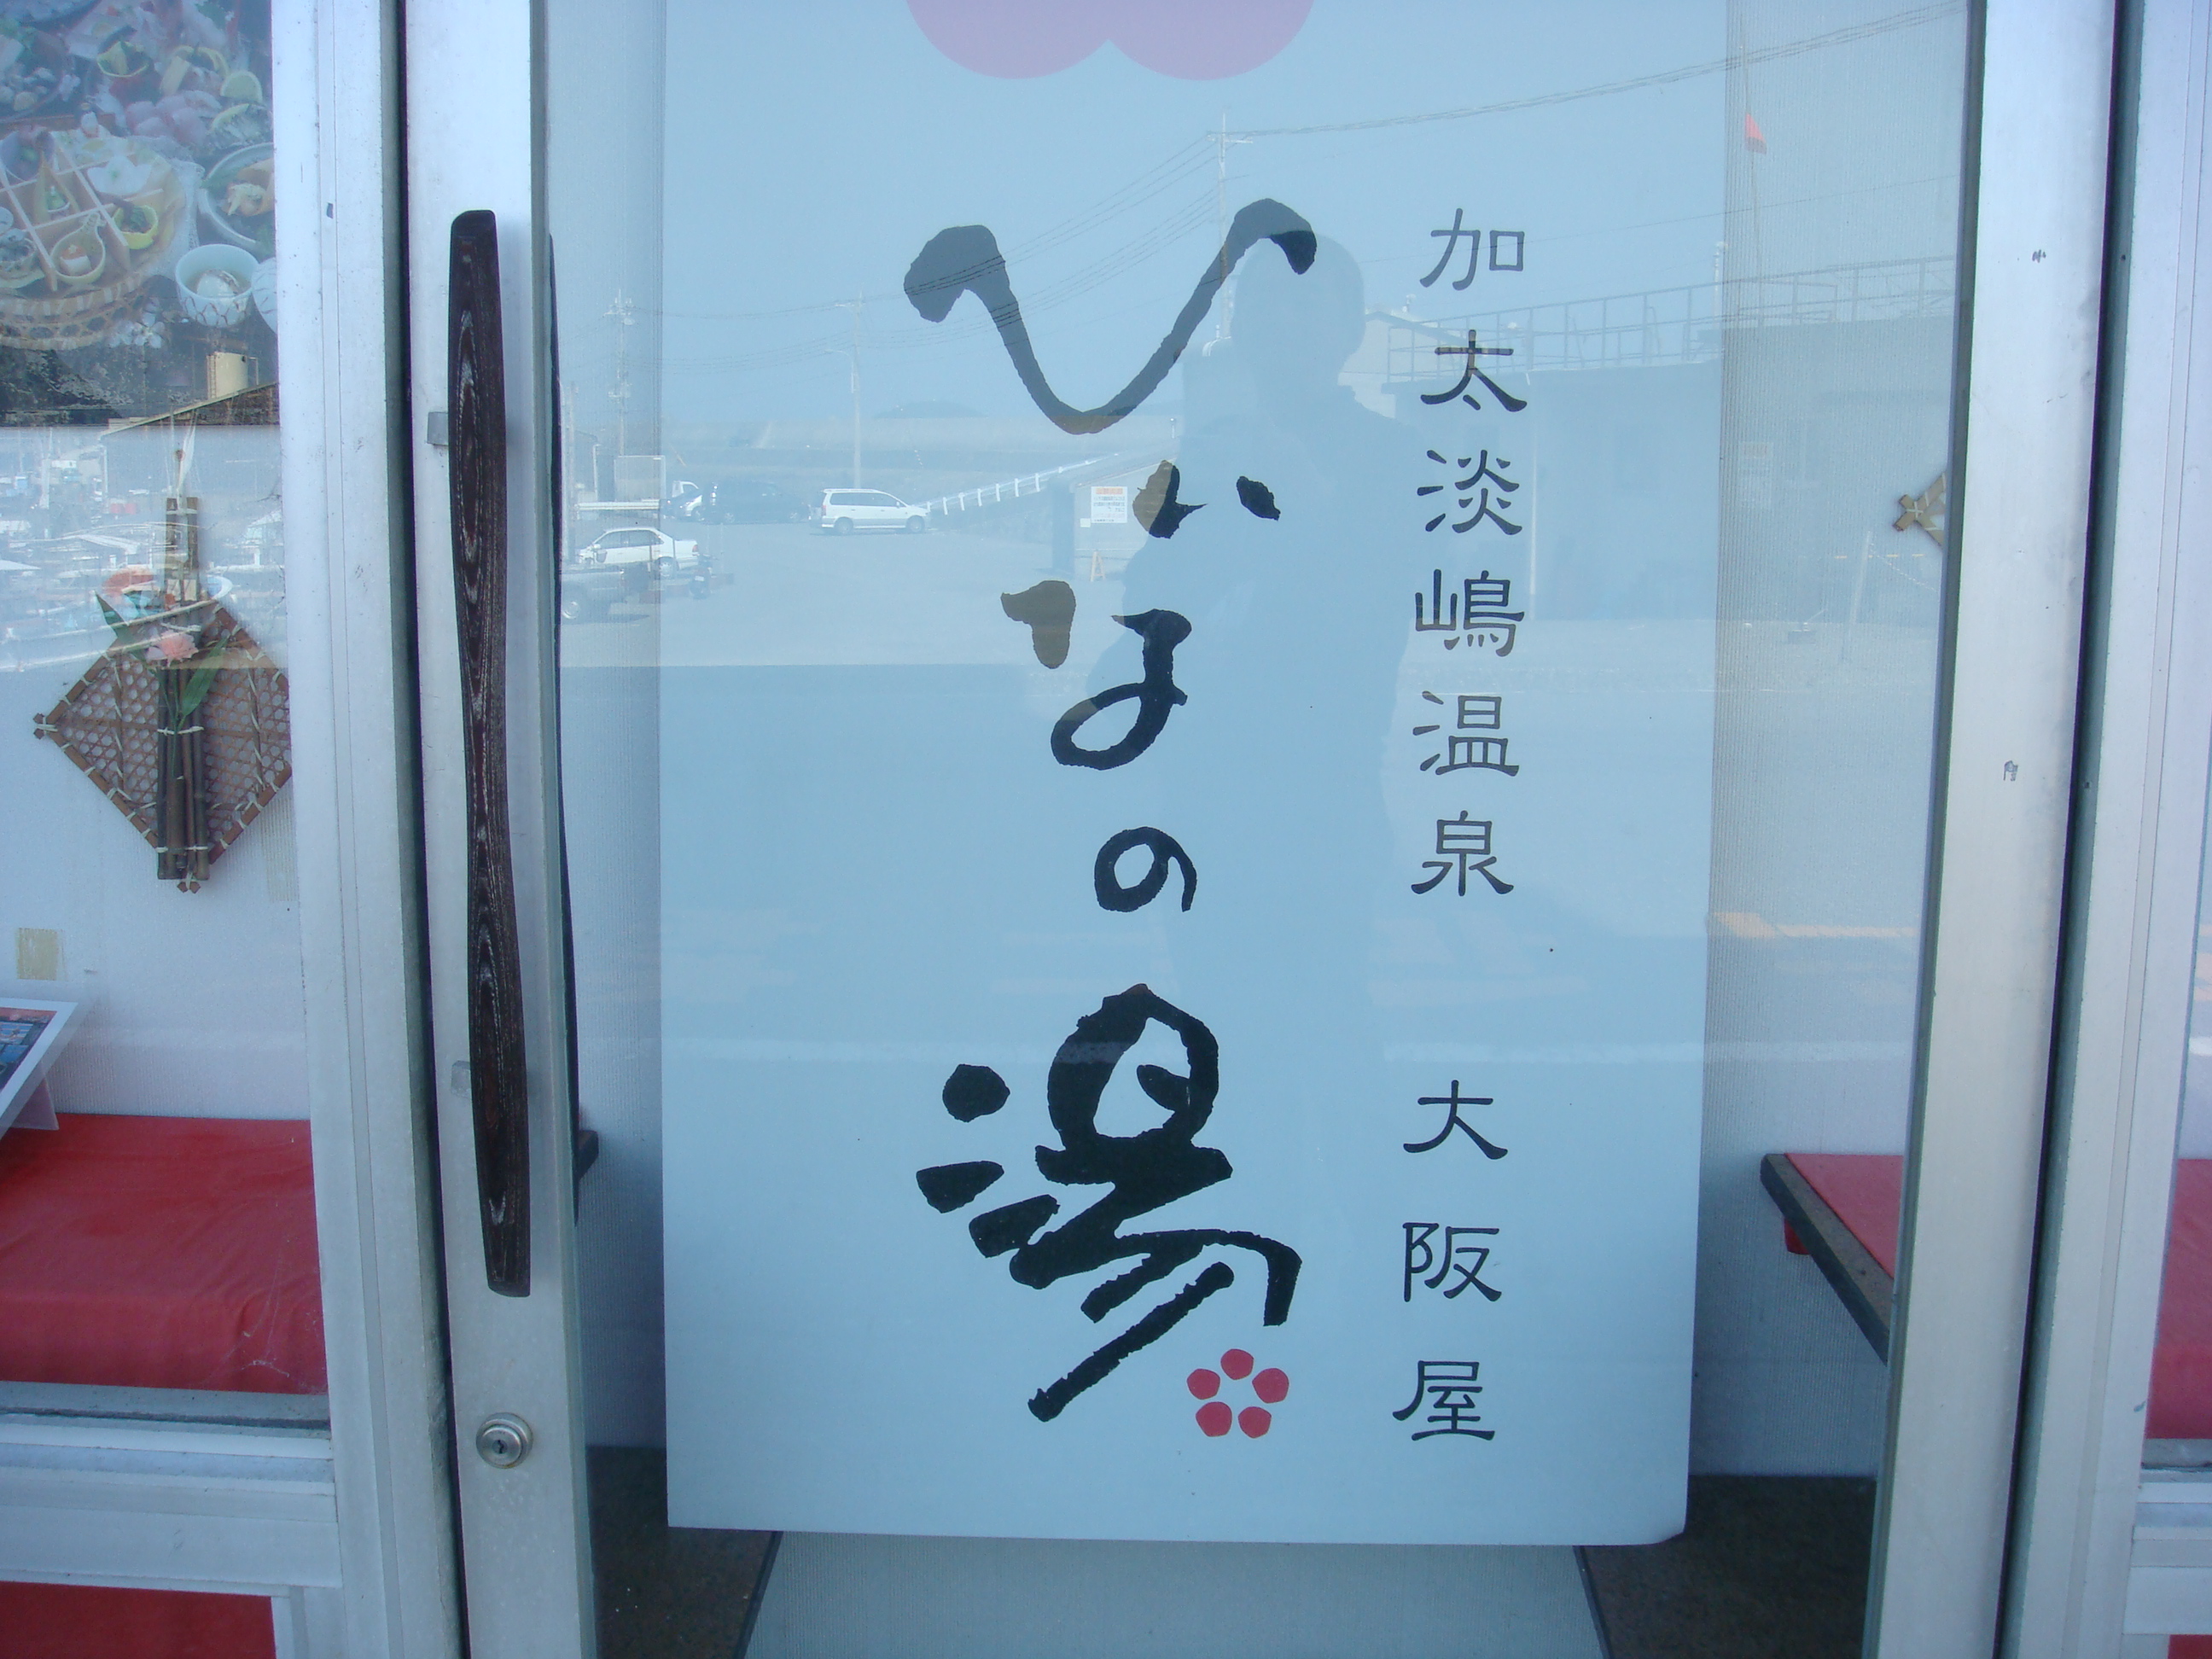 加太淡嶋温泉 大阪屋
ひいなの湯